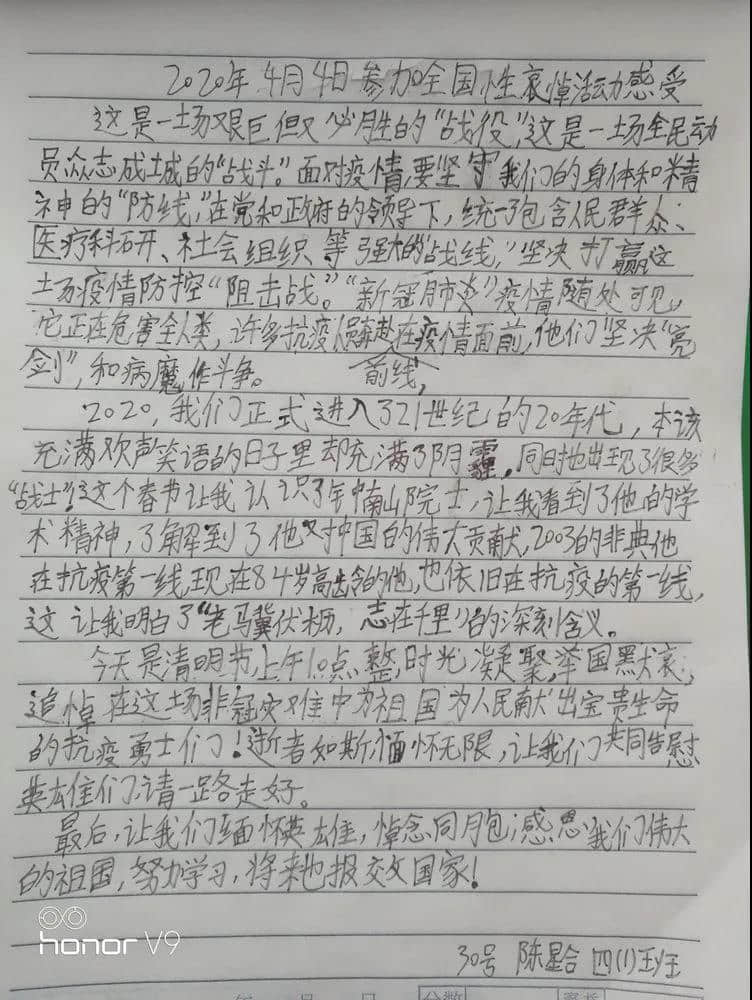 2020年4月4日参加全国性哀悼活动感受
这是一场艰巨但又必胜的“战役”,这是一场全民动
员众志成城的“战斗”。面对疫情,要坚守我们的身体和精
神的“防线”,在党和政府的领导下,统一了包含人民群众、
医疗科研、社会组织等强大的“战线”,坚决打赢这
场疫情防控“阻击战”。“新冠肺炎”疫情随处可见,
它正在危害全人类,许多抗疫人员奔赴在疫情面前,他们坚决“亮
剑”,和病魔作斗争。
前线,
2020,我们正式进入321世纪的20年代,本该
充满欢声笑语的日子里却充满了阴霾,同时也出现了很多
“战士”!这个春节让我认识了钟南山院士,让我看到了他的学
术精神,了解到了他对中国的伟大贡献,2003的非典他
在抗疫第一线,现在84岁高龄的他,也依旧在抗疫的第一线,
这让我明白了“老马冀伏枥,志在千里”的深刻含义。
今天是清明节,上午10点整,时光凝聚,举国默哀,
追悼在这场非冠灾难中为祖国为人民献出宝贵生命
的抗疫勇士们!逝者如斯,缅怀无限,让我们共同告慰
英雄们,请一路走好。
最后,让我们缅怀英雄,悼念同胞,感恩我们伟大
的祖国,努力学习,将来也报效国家!
30号 陈星合 四(1)班
honor V9
分数